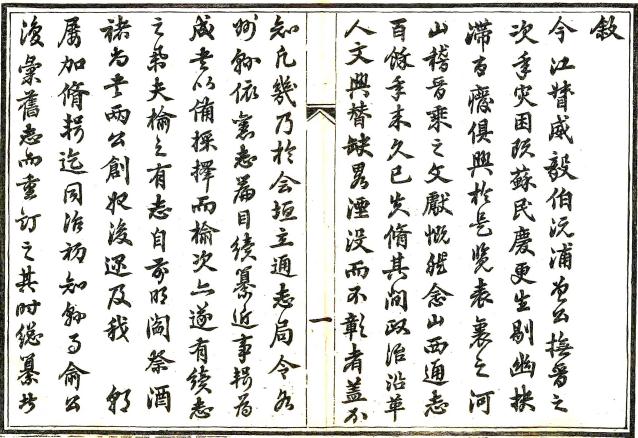 敘
今江督威毅伯沅浦曾公撫晉之
次年灾困既蘇民慶更生剔幽抉
滯百廢俱興於是覽表裏之河
山稽晉乘之文獻慨然念山西通志
百餘年来久已失脩其间政治沿革
人文興替缺畧湮没而不彰者盖不
知凡幾乃於会垣立通志局令各
州縣依舊志篇目續纂近事輯为
成书以俻採擇而榆次亦遂有續志
之举夫榆之有志自前明阎祭酒
褚尚书兩公創始後还及我 朝
屡加脩輯迄同治初知縣事俞公
復彙舊志而重訂之其时總纂者